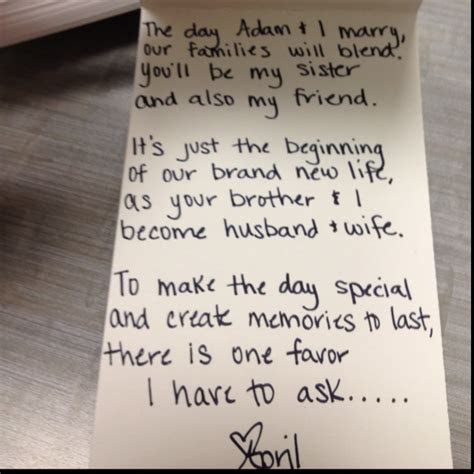 The day Adam & I marry,
our families will blend.
You'll be my sister
and also my friend.
It's just the beginning
of our brand new life,
as your brother & I
become husband & wife.
To make the day special
and create memories to last,
there is one favor
I have to ask.....
April